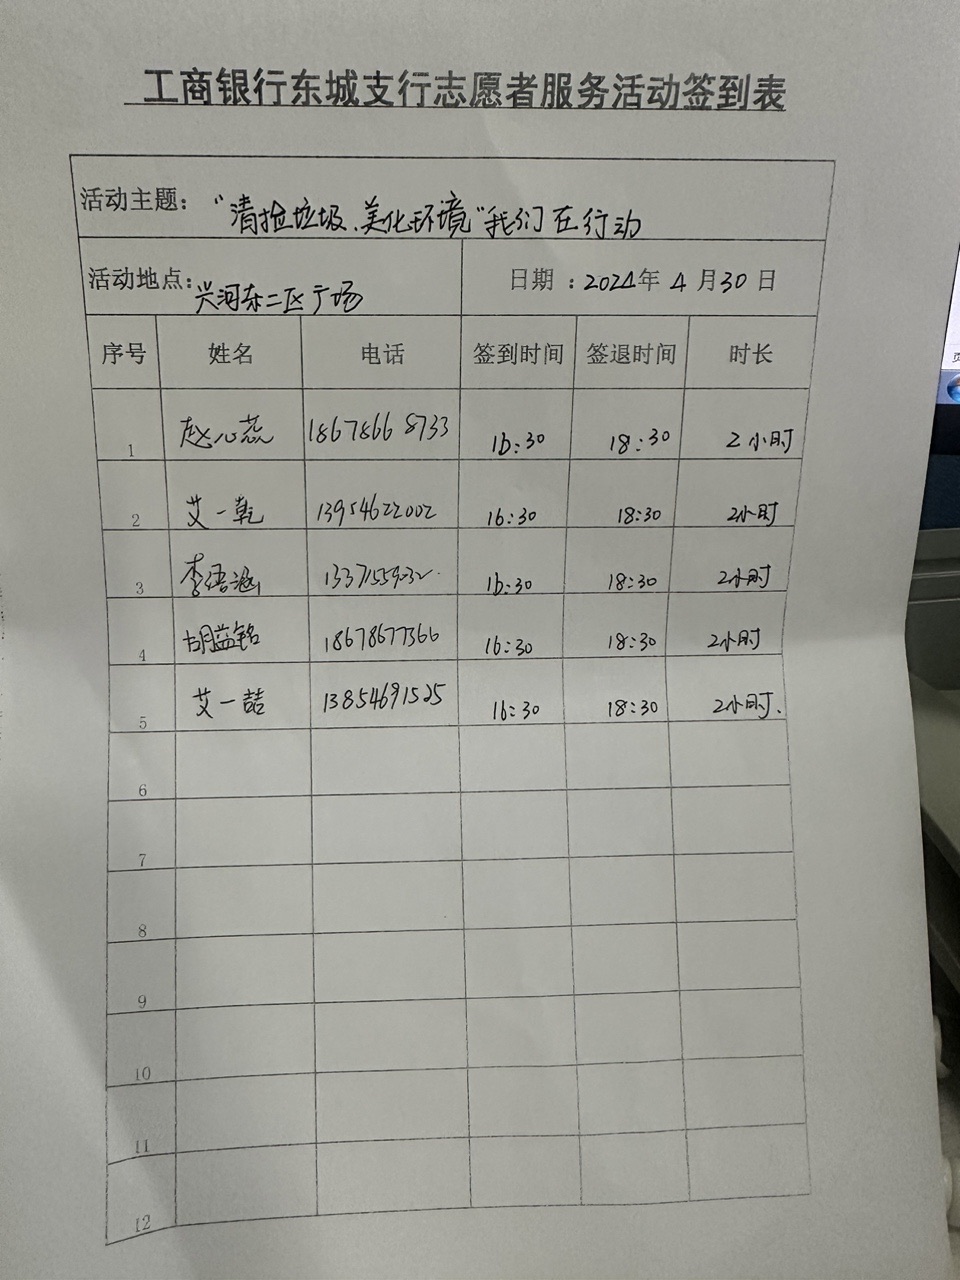 工商银行东城支行志愿者服务活动签到表
活动主题： “清捡垃圾、美化环境”我们在行动
活动地点： 兴河东二区广场 日期：2024年4月30日
序号 姓名 电话 签到时间 签退时间 时长
1 赵心蕊 18678668733 16:30 18:30 2小时
2 艾一乾 13954622002 16:30 18:30 2小时
3 李语涵 16:30 18:30 2小时
4 胡益铭 18678677366 16:30 18:30 2小时
5 艾一喆 13854691525 16:30 18:30 2小时.
6
7
8
9
10
11
12